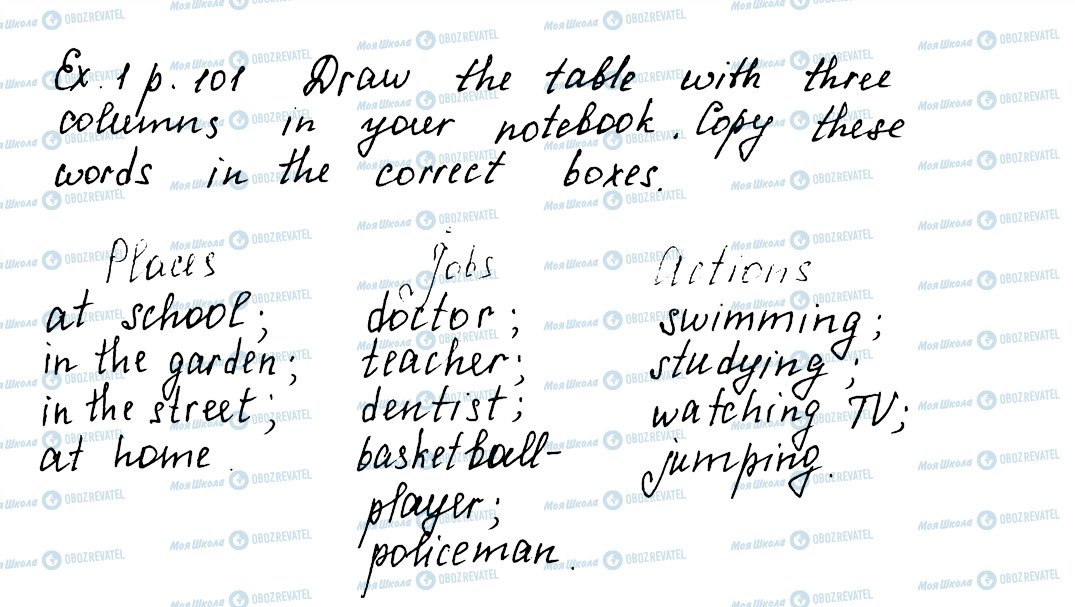 Ex. 1 p. 101 Draw the table with three
columns in your notebook. Copy these
words in the correct boxes.
Places Jobs Actions
at school; doctor; swimming;
in the garden; teacher; studying;
in the street; dentist; watching TV;
at home. basketball- jumping.
player;
policeman.